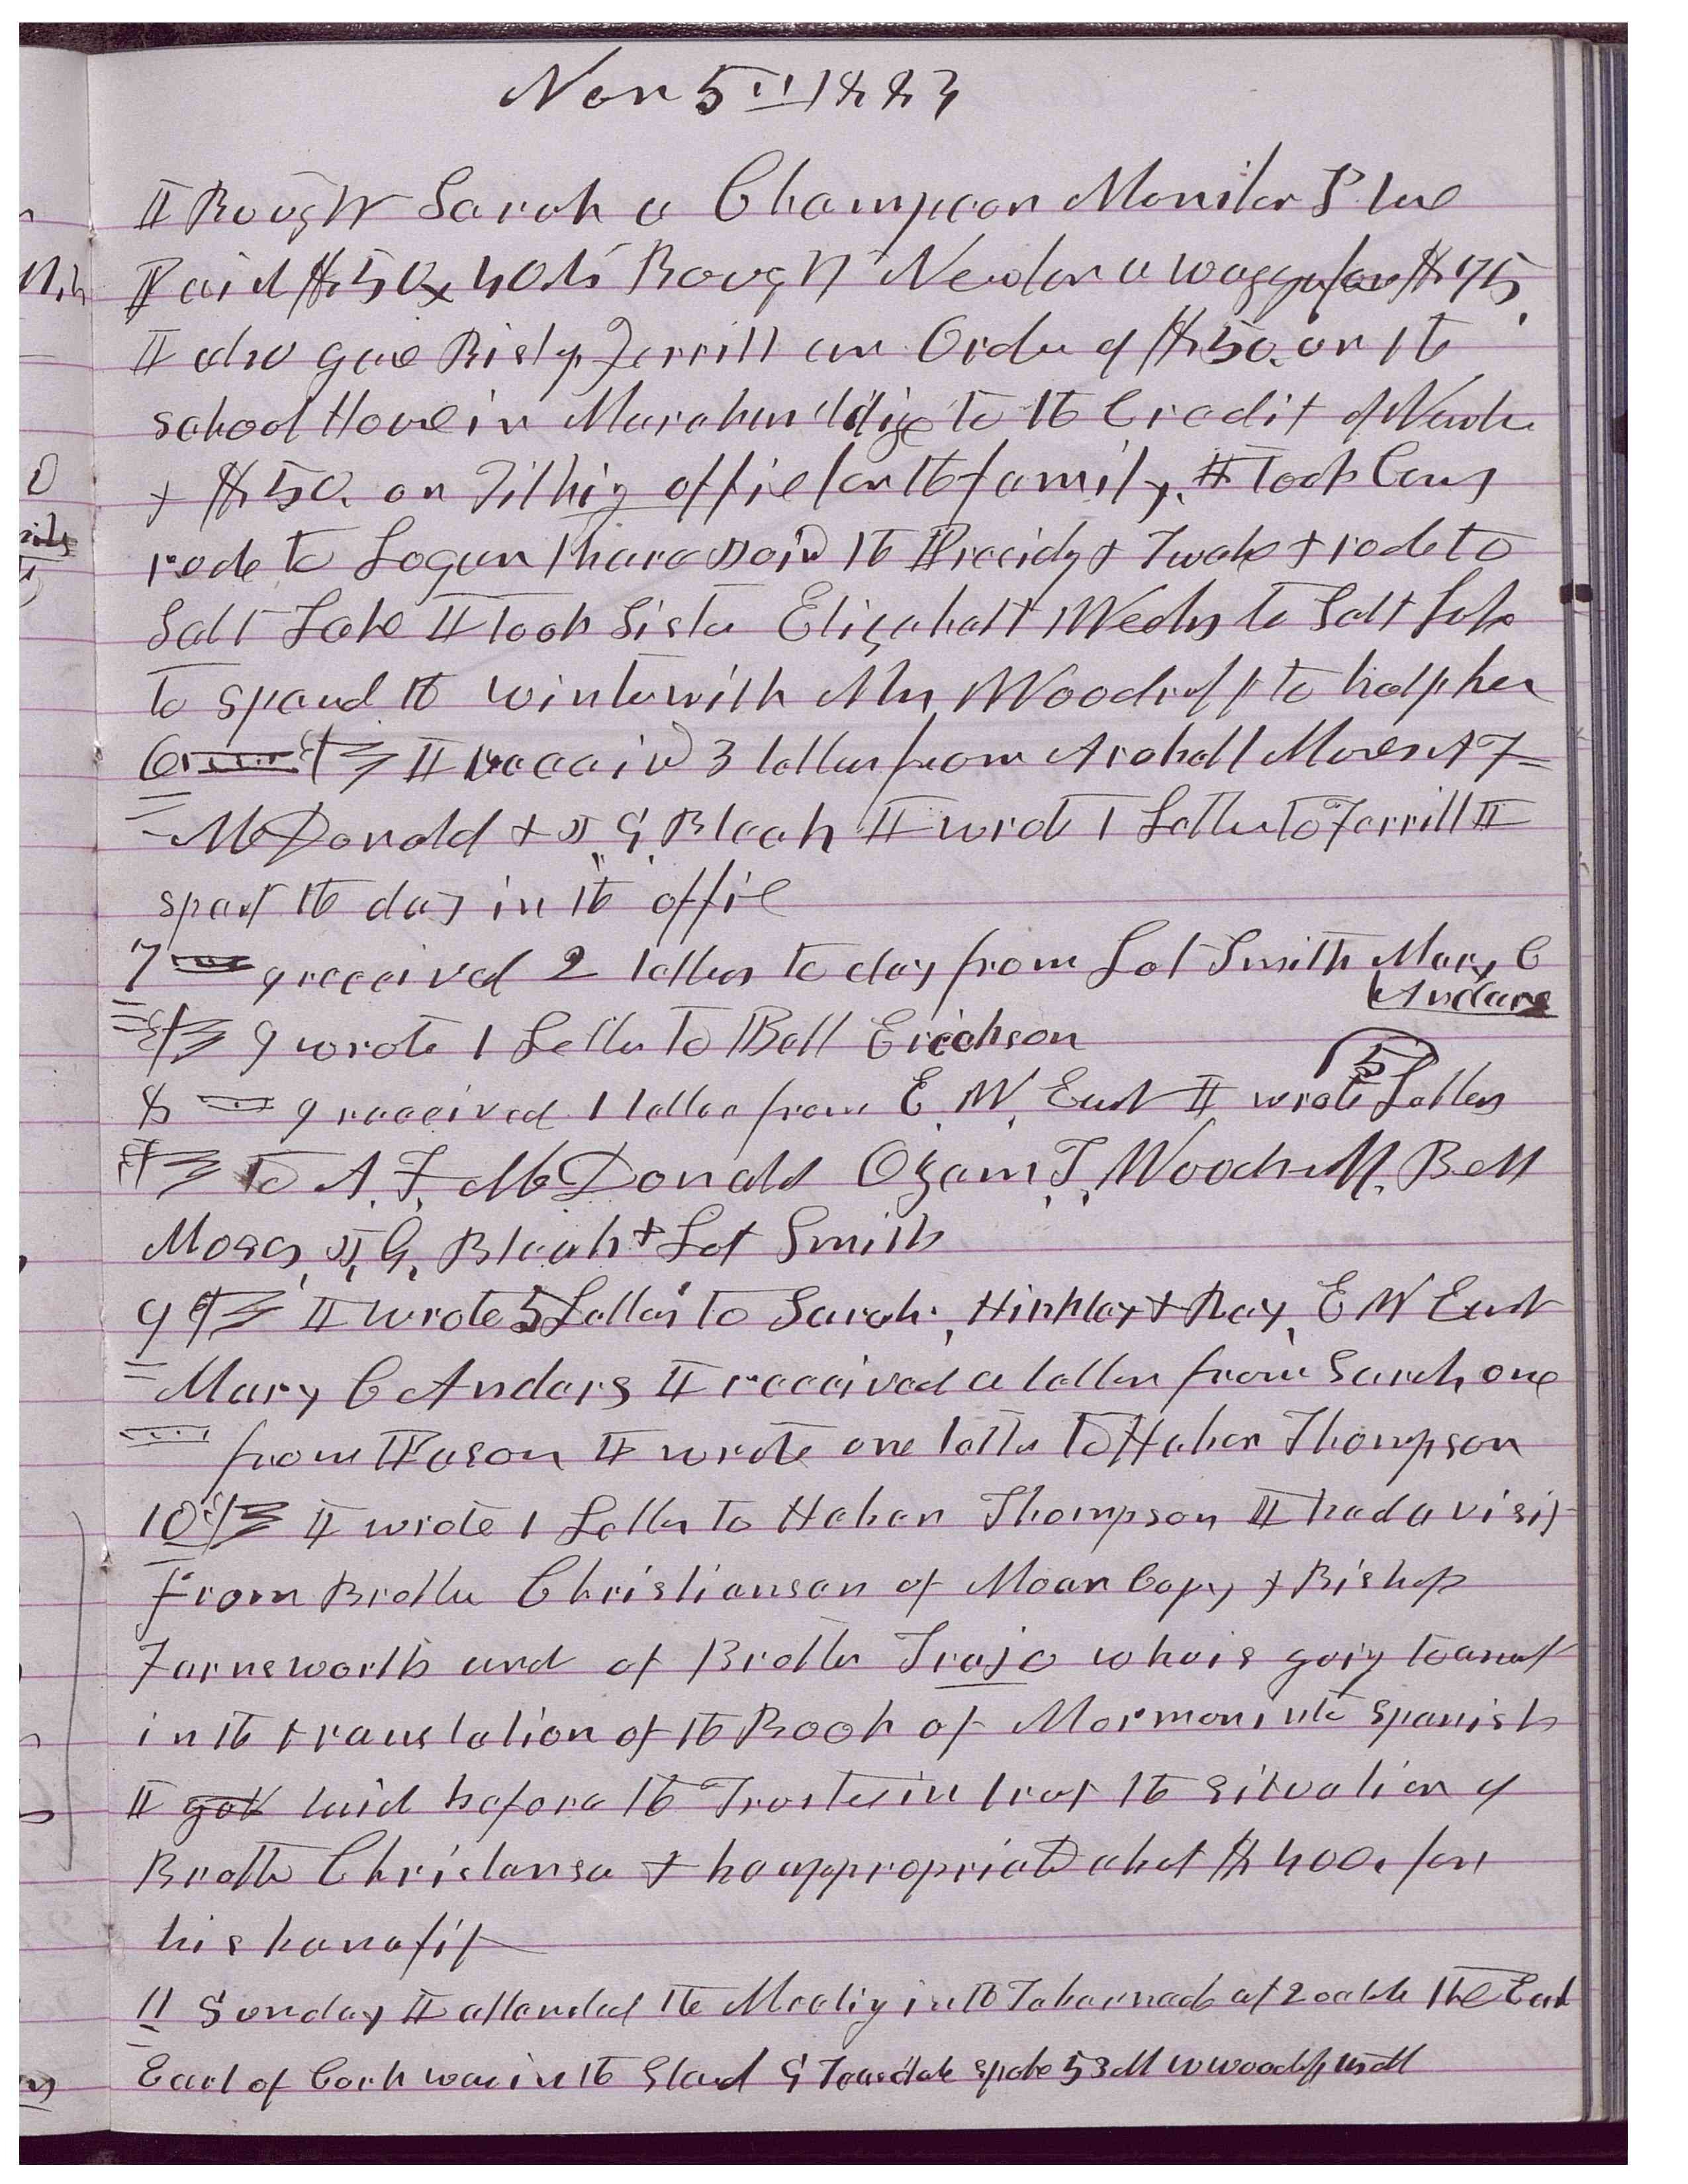 Nov 5 1883
I Bought Sarah a Champion Monitor Stove
Paid $50 40lb Bought Newton a waggon for $75,
I also gave Bishop Farrill an Order of $50. on the
school House in to the Credit of
+ $50. on Tithing office for the family. I took Cars
rode to Logan thare Join the Presidy + Twelve + rode to
Salt Lake I took Sister Elizabath Weeks to Salt Lake
to spend the winter with Mrs Woodruff to help her
6 I receeived 3 letters from Arabell Moses A F
McDonald + J. G. Bleak I wrote 1 Letter to Farrill I
spent the day in the office
7 I received 2 letters to day from Lot Smith Mary C
Anders
I wrote 1 Letter to Bell Erickson
8 I received 1 letter from E. W. East I wrote 5 Letters
to A. F. McDonald Ozam, T, Woodruff, Bell
Moses, J, G, Bleak + Lot Smith
9 I wrote 5 Letters to Sarah, Hinkley + Ray, E W East
Mary C Anders I received a letter from Sarah one
from Eason I wrote one letter to Haber Thompson
10 I wrote 1 Letter to Haben Thompson I had a visit
From Brother Christianson of Moan Copy, + Bishop
Farnsworth and of Brother Trejo who is going to assist
in the translation of the Book of Mormon into Spanish
I got laid before the Trustee in trust the situation of
Brother Christansen + he appropriated about $400. for
his banafit
11 Sunday I attended the Meeting in the Tabarnacle at 2 oclok the Earl
Earl of Cork was in the Stand G Teasdale spoke 53 M W Woodruff M